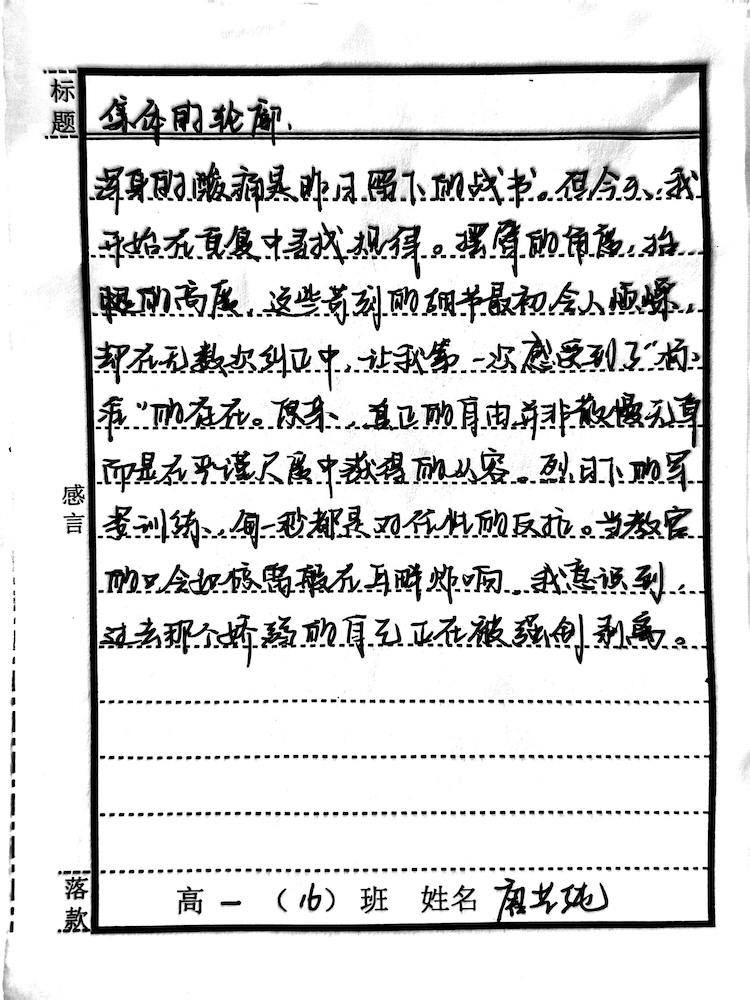 标题
集体的轮廓.
浑身的酸痛是昨日留下的战书。但今天,我
开始在重复中寻找规律。摆臂的角度,抬
腿的高度,这些苛刻的细节最初令人烦燥,
却在无数次纠正中,让我第一次感受到了“标
准”的存在。原来、真正的自由并非散慢无章
而是在严谨尺度中获得的从容。烈日下的军
姿训练、每一秒都是对任性的反抗。当教官
的口令如惊雷般在耳畔炸响,我意识到,
过去那个娇弱的自己正在被强制剥离。
感言
落款
高一(16)班 姓名